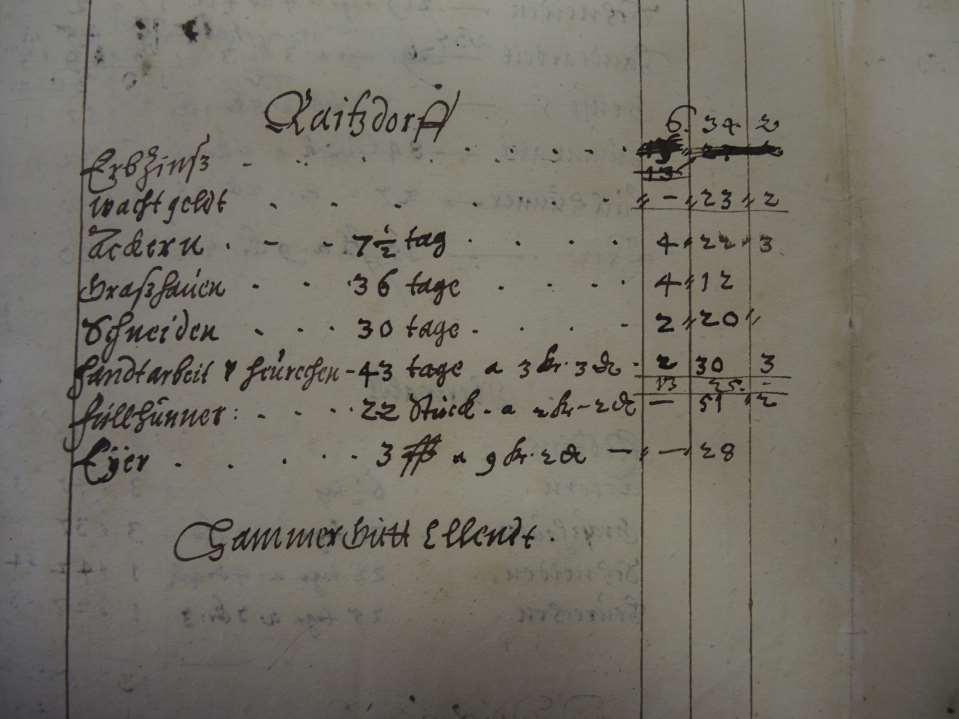 Raitzdorff
6. 34 2
Erbzinß
wachtgeldt - 23 2
Ackern 7½ tag 4 22 3
Graßhauen 36 tage 4 12
Schneiden 30 tage 2 20
handtarbeit 43 tage a 3 kr. 3 d 2 30 3
13 25. -
hüner: 22 Stück a 2 kr - 2 d - 51 2
Eÿer 3 ß a 9 kr. 2 d - 28
Cammergutt Ellendt.